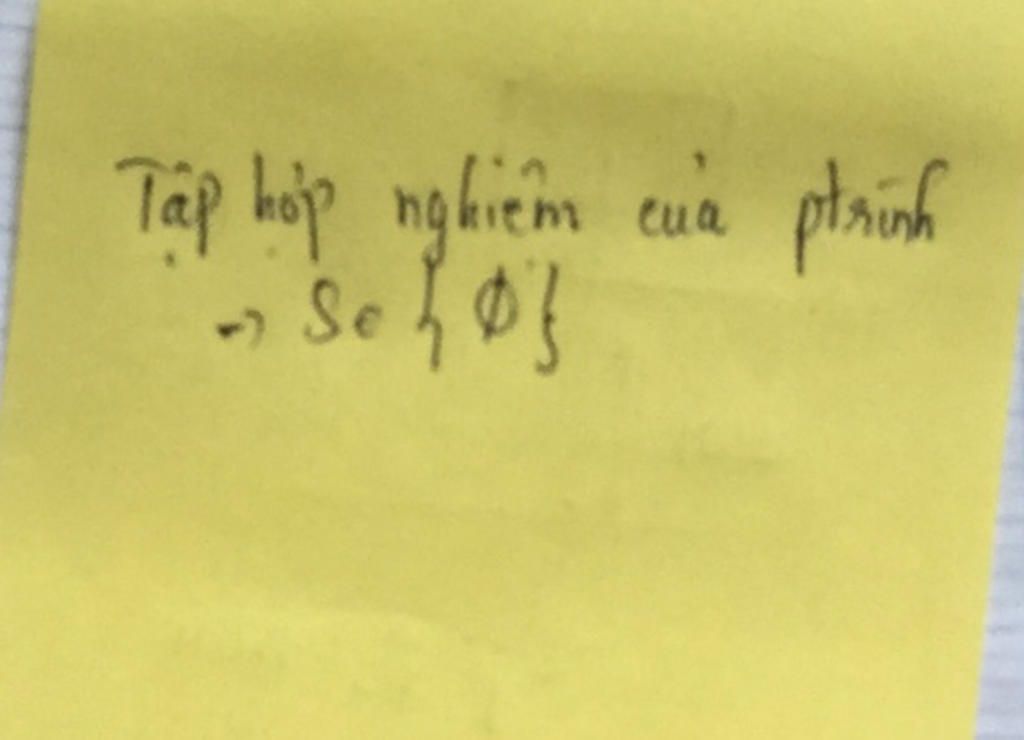 Tập hợp nghiệm của ptrình
→ S e { Ø }